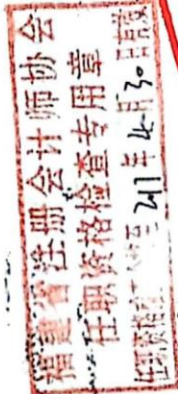 福建省注册会计师协会
任职资格检查专用章
任职资格 至 2011年4月30日